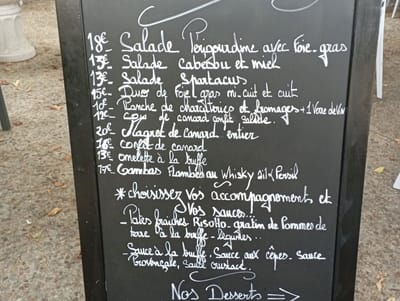 18€ - Salade Périgourdine avec Foie-gras
13€ - Salade Cabécou et miel
13€ - Salade Spartacus
15€ - Duo de Foie gras mi-cuit et cuit
10€ - Planche de charcuteries et fromages + 1 Verre de Vin
12€ - Cou de canard confit, salade.
20€ Magret de canard entier
16€ confit de canard
13€ omelette à la truffe
17€ - Gambas Flambées au Whisky ail & Persil
* choisissez Vos accompagnement et
Vos sauces...
- Pates fraîches Risotto - gratin de Pommes de
terre à la truffe - légumes..
- Sauce à la truffe. Sauce aux cèpes. Sauce
Provençale, Sauce crustacé.
Nos Desserts =>